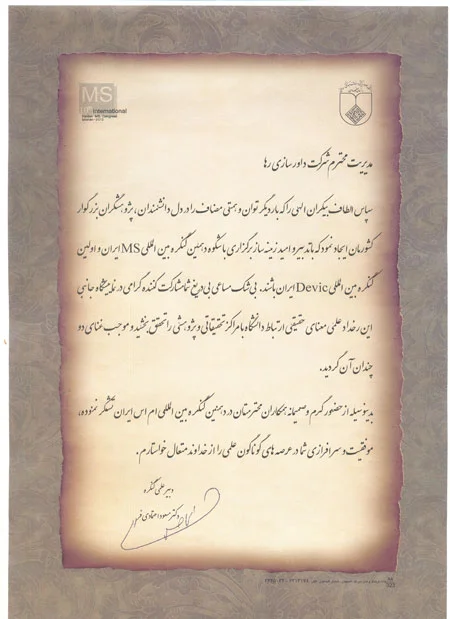 MS
International
مدیریت محترم شرکت داورسازی رها
سپاس الطاف بیکران الهی را که بار دیگر توان و همتی مضاف را در دل دانشمندان، پژوهشگران بزرگوار
کشورمان ایجاد نمود که با تدبیر و امید زمینه ساز برگزاری باشکوه دهمین کنگره بین المللی MS ایران و اولین
کنگره بین المللی Devic ایران باشند. بی شک مساعی بی دریغ شما مشارکت کننده گرامی در نمایشگاه جانبی
این رخداد علمی معنای حقیقی ارتباط دانشگاه با مراکز تحقیقاتی و پژوهشی را تحقق بخشید و موجب غنای دو
چندان آن گردید.
بدینوسیله از حضور گرم و صمیمانه همکاران محترمتان در دهمین کنگره بین المللی ام اس ایران تشکر نموده،
موفقیت و سرافرازی شما در عرصه های گوناگون علمی را از خداوند متعال خواستارم.
دبیر علمی کنگره
دکتر مسعود اعتمادی فر